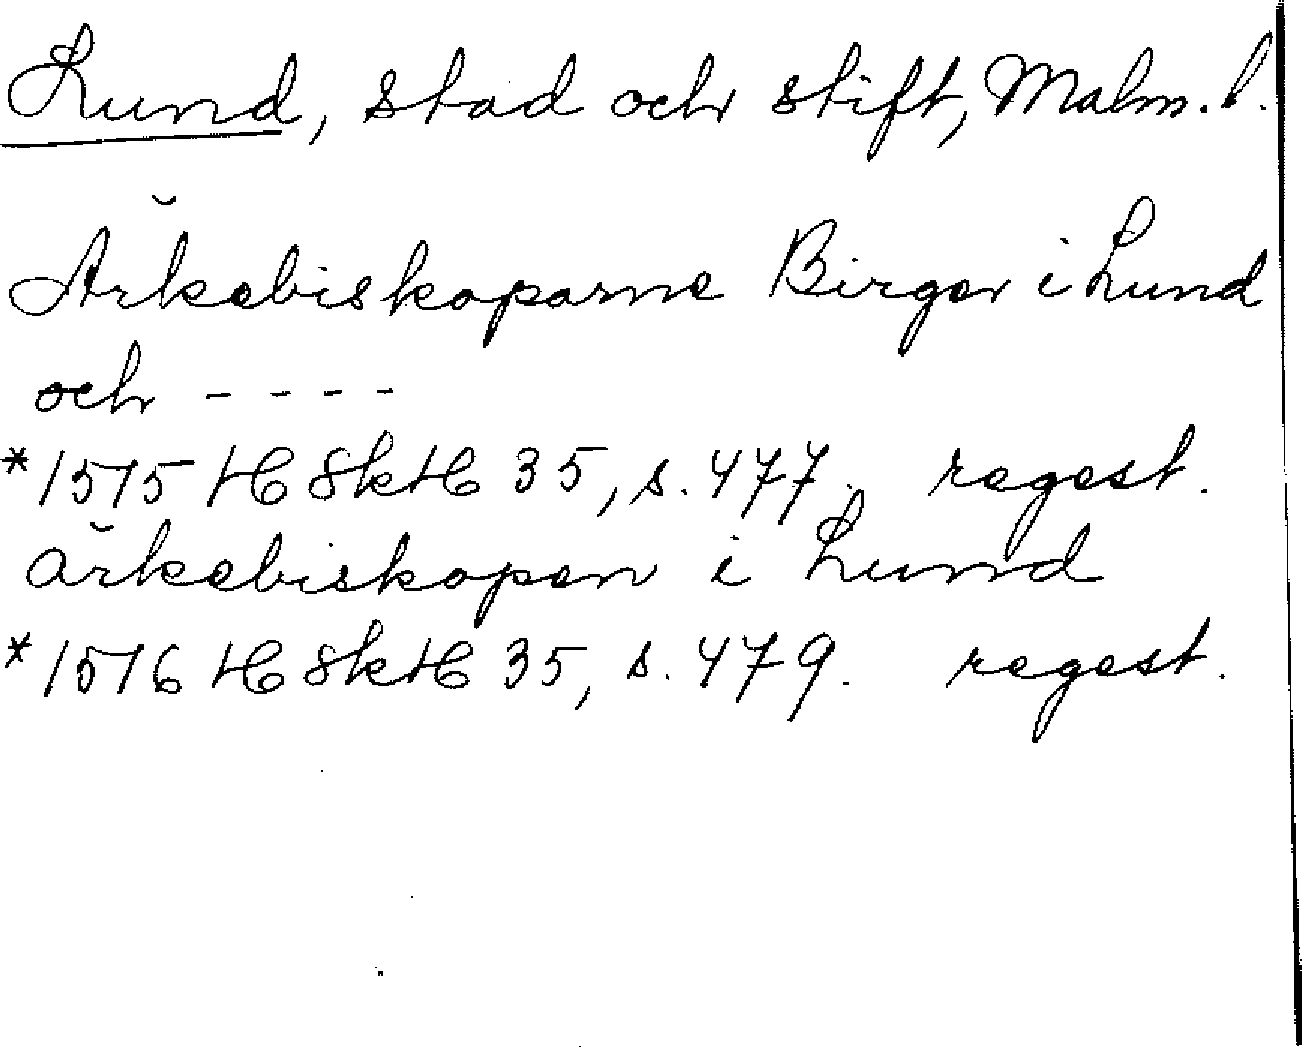 Lund, stad och stift, Malm. l.
Ärkebiskoparne Birger i Lund
och - - - -
*1515 HSkH 35, s. 477. regest.
ärkebiskopen i Lund
*1516 HSkH 35, s. 479. regest.